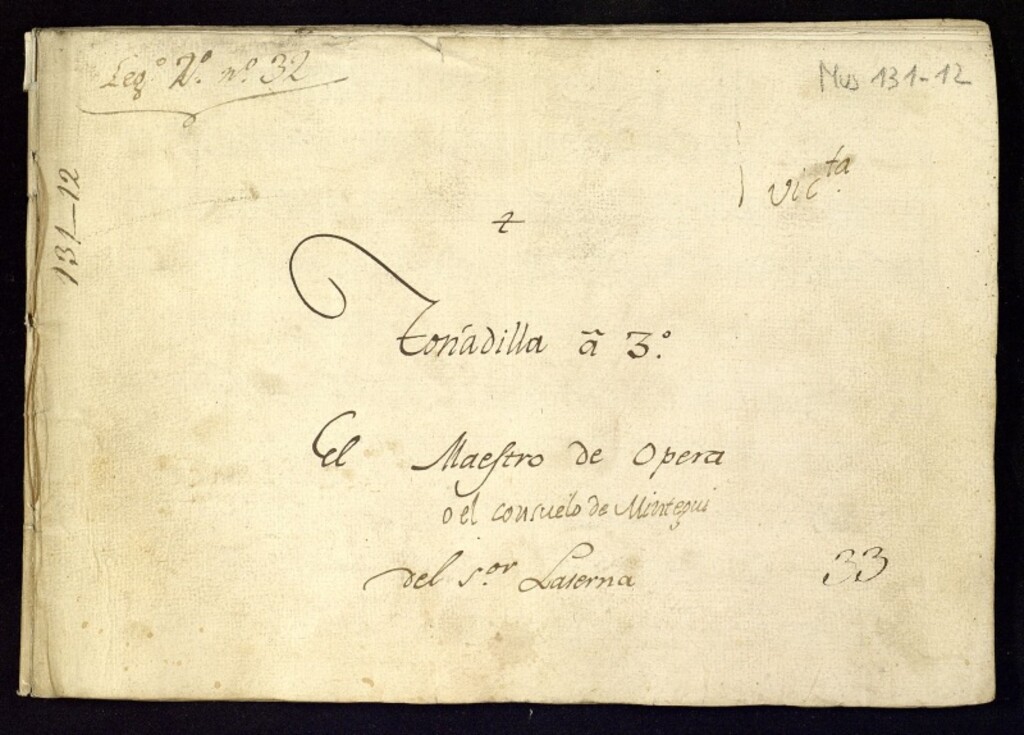 Leg.º 2.º n.º 32
Mus 131-12
131-12
vic.ta
Tonadilla ã 3.º
El Maestro de Opera
o el consuelo de Mintegui
del s.or Laserna
33